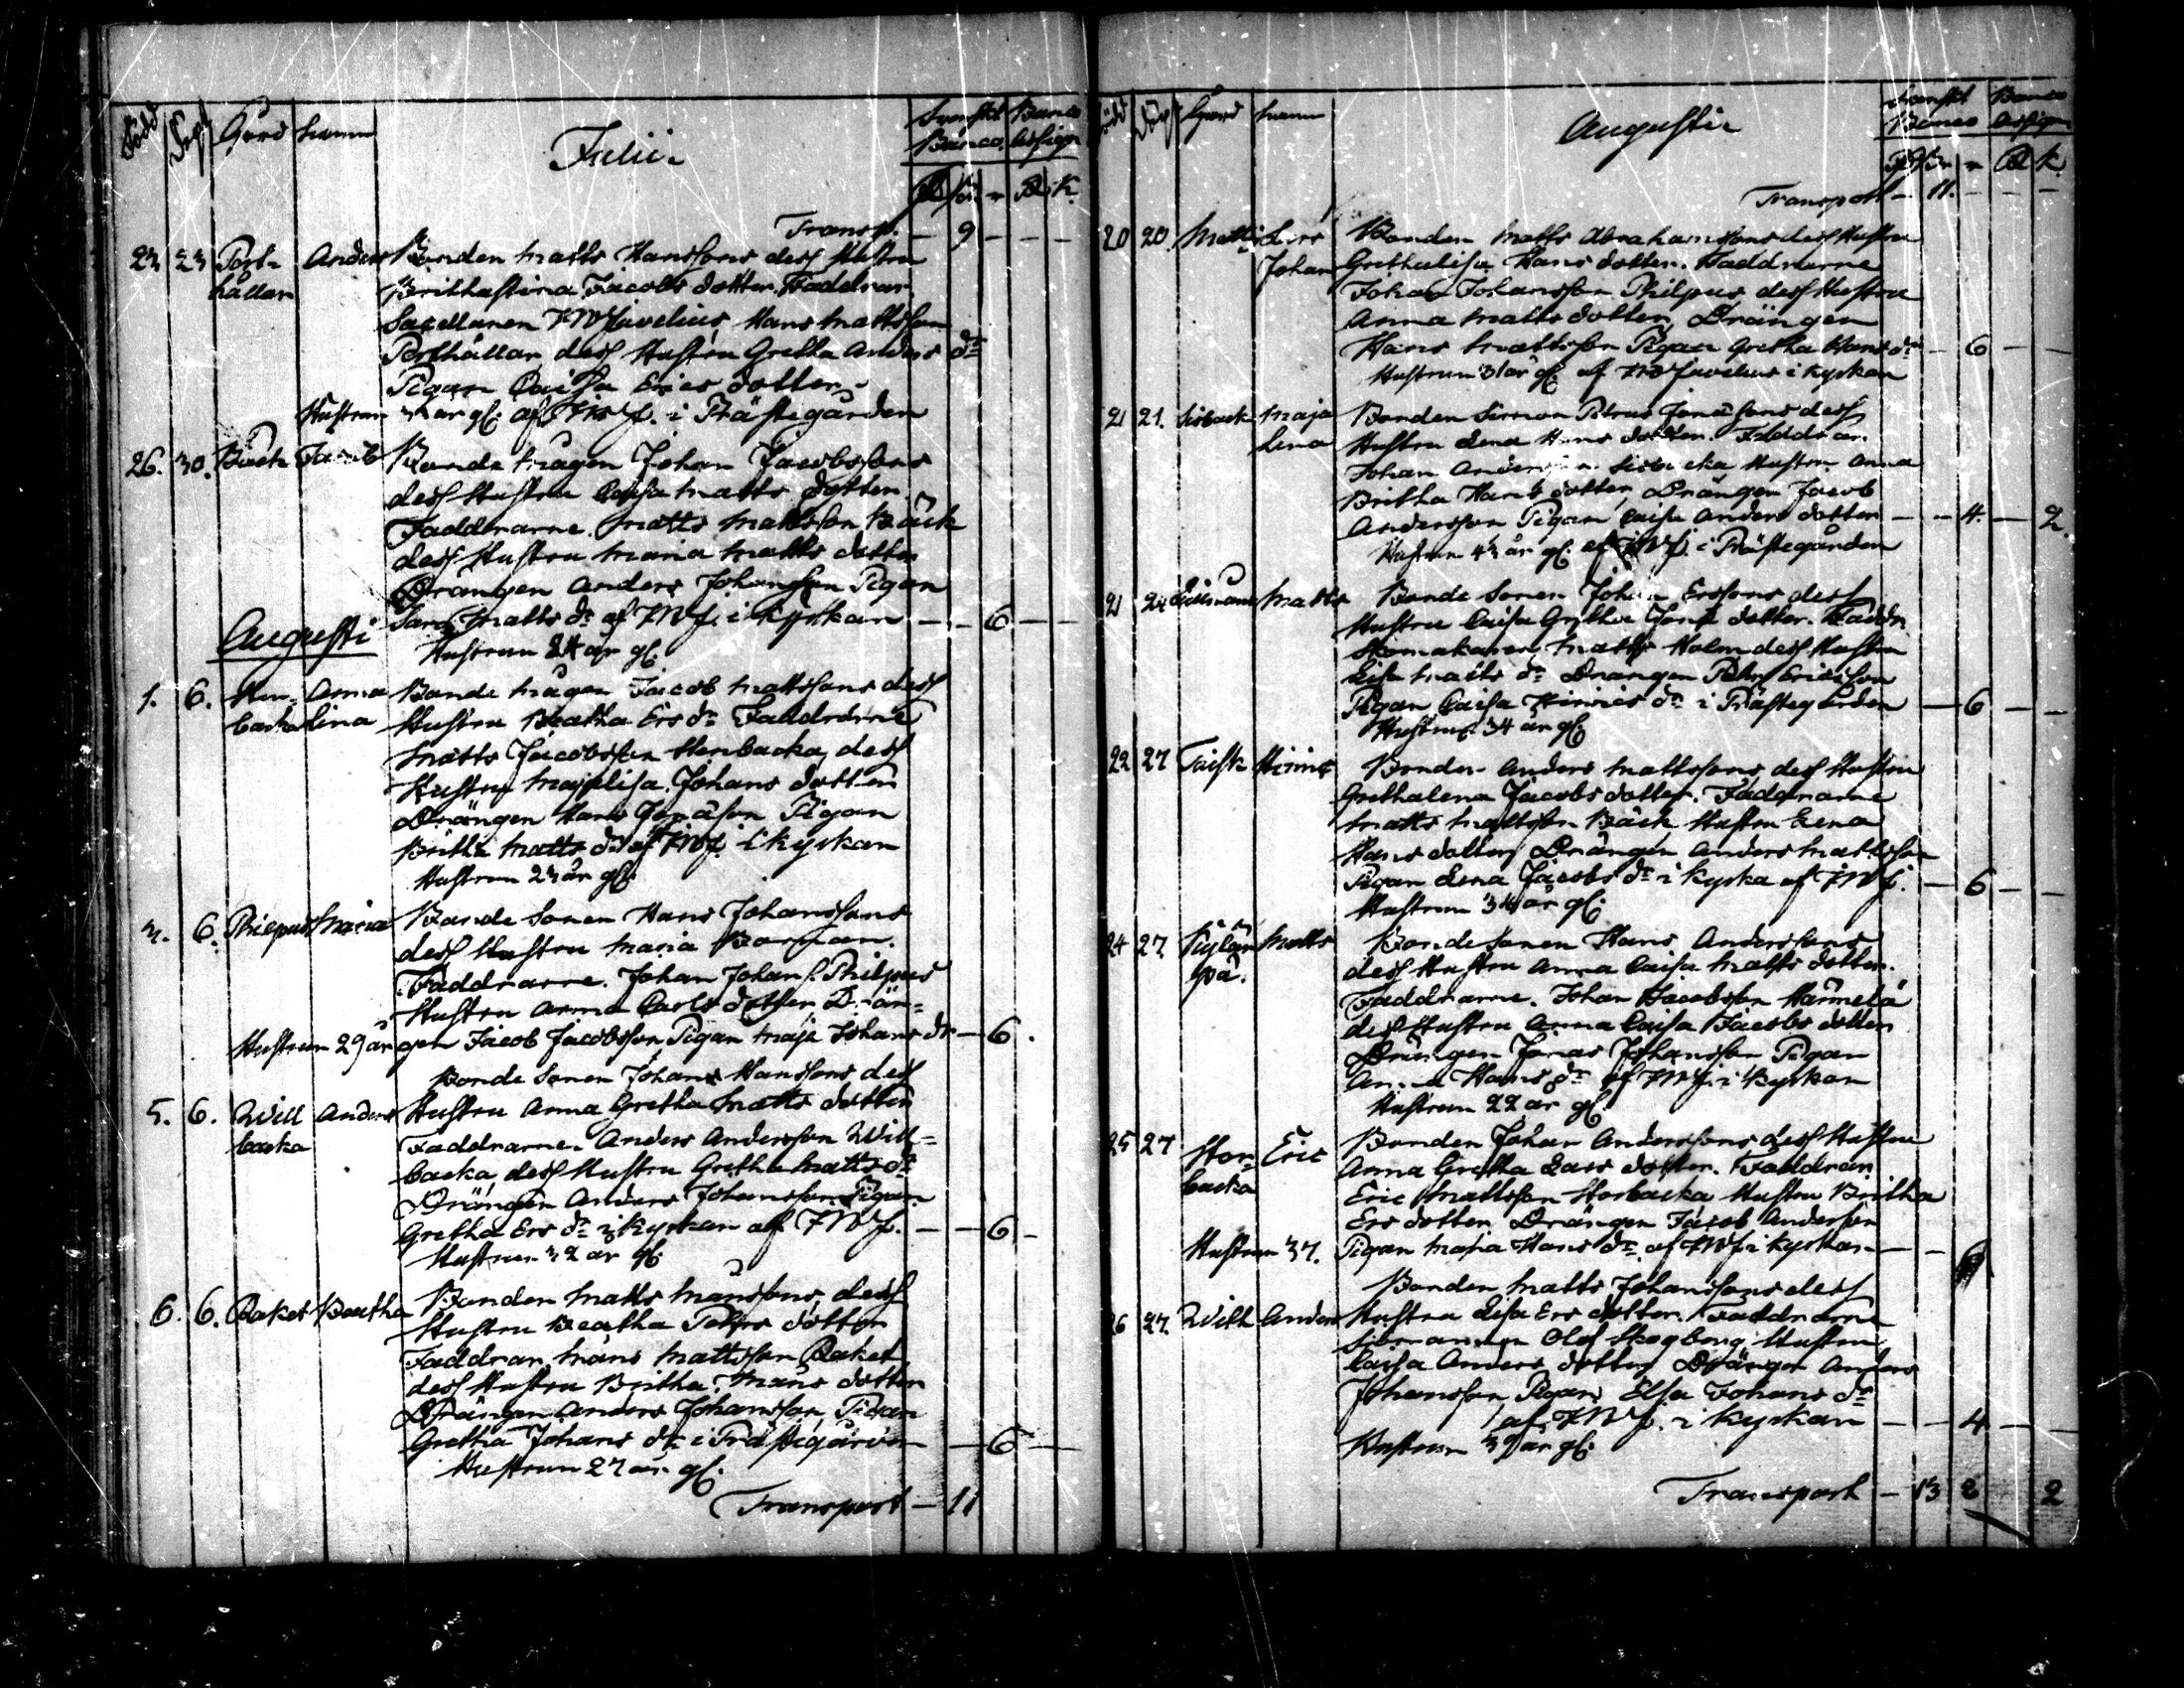 Född Döpt Gård Namn Julii Svenskt Banco Banco Assign
R Sk r R K
Transp. — 9 — — —
23 23 Post- Anders Bonden Matts Hanssons dess Hustru
hållar Brithastina Jacobs dotter. Faddrar
Sacellanen FWJavelius Hans Mattsson
Posthållar dess Hustru Gretha Anders dr
Pigan Caisa Erics dotter
Hustrun 32 år gl: af FWJ. i Prästegården
26. 30. Back Jacob Bonde mågen Johan Jacobssons
dess Hustru Caisa Matts dotter
Faddrarne. Matts Mattsson Back
dess Hustru Maria Matts dotter
Drängen Anders Johansson Pigan
Sara Matts dr af FWJ. i Kyrkan — — 6 — —
Augusti
Hustrun 24 år gl:
1. 6. Sten- Anna Bonde mågen Jacob Mattssons dess
backa Lina Hustru Beatha Ers dr Faddrarne
Matts Jacobsson Stenbacka dess
Hustru Majalisa Johans dotter
Drängen Hans Jonasson Pigan
Britha Matts dr af FWJ. i kyrkan
Hustrun 23 år gl:
3. 6. Philpus Maria Bonde Sonen Hans Johanssons
dess Hustru Maria Borman.
Faddrarne. Johan Johans. Philpus
Hustru Anna Carls dotter Drän=
Hustrun 29 år gen Jacob Jacobsson Pigan Maja Johans dr — 6.
Bonde Sonen Johans Hanssons dess
5. 6. Will Anders Hustru Anna Gretha Matts dotter
backa Faddrarne. Anders Andersson Will=
backa, dess Hustru Gretha Matts dr
Drängen Anders Johansson Pigan
Gretha Ers dr i Kyrkan af FWJ. — — 6 —
Hustrun 32 år gl:
6. 6. Raket Beatha Bonden Matts Månssons, dess
Hustru Beatha Pehrs dotter
Faddrar, Måns Mattsson Raket
dess Hustru Britha Måns dotter
Drängen Anders Johansson, Pigan
Gretha Johans dr i Prästegården — 6 —
Hustrun 27 år gl:
Transport — 11
Född Döp Gård Namn Augusti Svenskt Banco Banco Assign
R Sk r R k
Transport — 11. — — —
20 20. Matts Lars Bonden Matts Abrahamssons dess Hustru
Johan Grethalisa Hans dotter. Faddrarne
Johan Johansson Philpus, dess Hustru
Anna Matts dotter, Drängen
Hans Mattsson Pigan Gretha Hans dr — 6 — —
Hustrun 31 år gl: af FWJavelius i kyrkan
21 21. Sisback Maja Bonden Simon Petrus Jonassons dess
Lena Hustru Lena Hans dotter. Faddrar.
Johan Andersson Sisbacka Hustru Anna
Britha Hans dotter, Drängen Jacob
Andersson Pigan Caisa Anders dotter — — 4. — 2.
Hustrun 43 år gl. af FWJ. i Prästegården
21 24 Matts Bonde Sonen Johan Erssons dess
Hustru Caisa Gretha Jonæ dotter. Faddr.
Skomakaren Matts Holm dess Hustru
Lisa Matts dr Drängen Pehr Ericsson
Pigan Caisa Hinrics dr i Prästegården — 6 — —
Hustrun 34 år gl:
22 27 Taisk Hinric Bonden Anders Mattssons dess Hustru
Grethalena Jacobs dotter. Faddrarne
Matts Mattsson Back Hustru Lena
Hans dotter Drängen Anders Mattsson
Pigan Lena Jacobs dr i kyrka af FWJ. — 6 — —
Hustrun 34 år gl:
24 27. Matts Bonde Sonen Hans Anderssons
på. dess Hustru Anna Caisa Matts dotter.
Faddrarne. Johan Jacobsson
dess Hustru Anna Caisa Jacobs dotter
Drängen Jonas Johansson Pigan
Anna Hans dr af FWJ. i kyrkan
Hustrun 22 år gl:
25 27 Stor= Eric Bonden Johan Anderssons dess Hustru
backa Anna Gretha Lars dotter. Faddrar
Eric Mattsson Storbacka Hustru Britha
Ers dotter, Drängen Jacob Andersson
Hustrun 37. Pigan Maja Hans dr af FWJ i kyrkan — — 6
Bonden Matts Johanssons dess
26 27. Will Anders Hustru Lisa Ers dotter. Faddrarne
Olof Skogberg Hustru
Caisa Anders dotter, Drängen Anders
Johansson Pigan Elsa Johans dr
af FWJ. i Kyrkan — — 4 — —
Hustrun 39 år gl:
Transport — 13 2 2